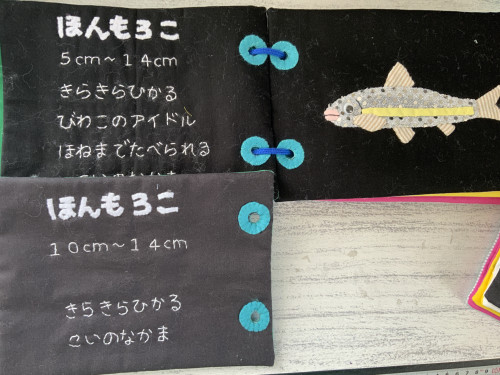 ほんもろこ
5cm～14cm
きらきらひかる
びわこのアイドル
ほねまでたべられる
ほんもろこ
10cm～14cm
きらきらひかる
こいのなかま